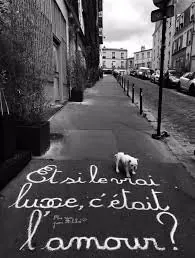 Et si le vrai
luxe, c'était
l'amour?